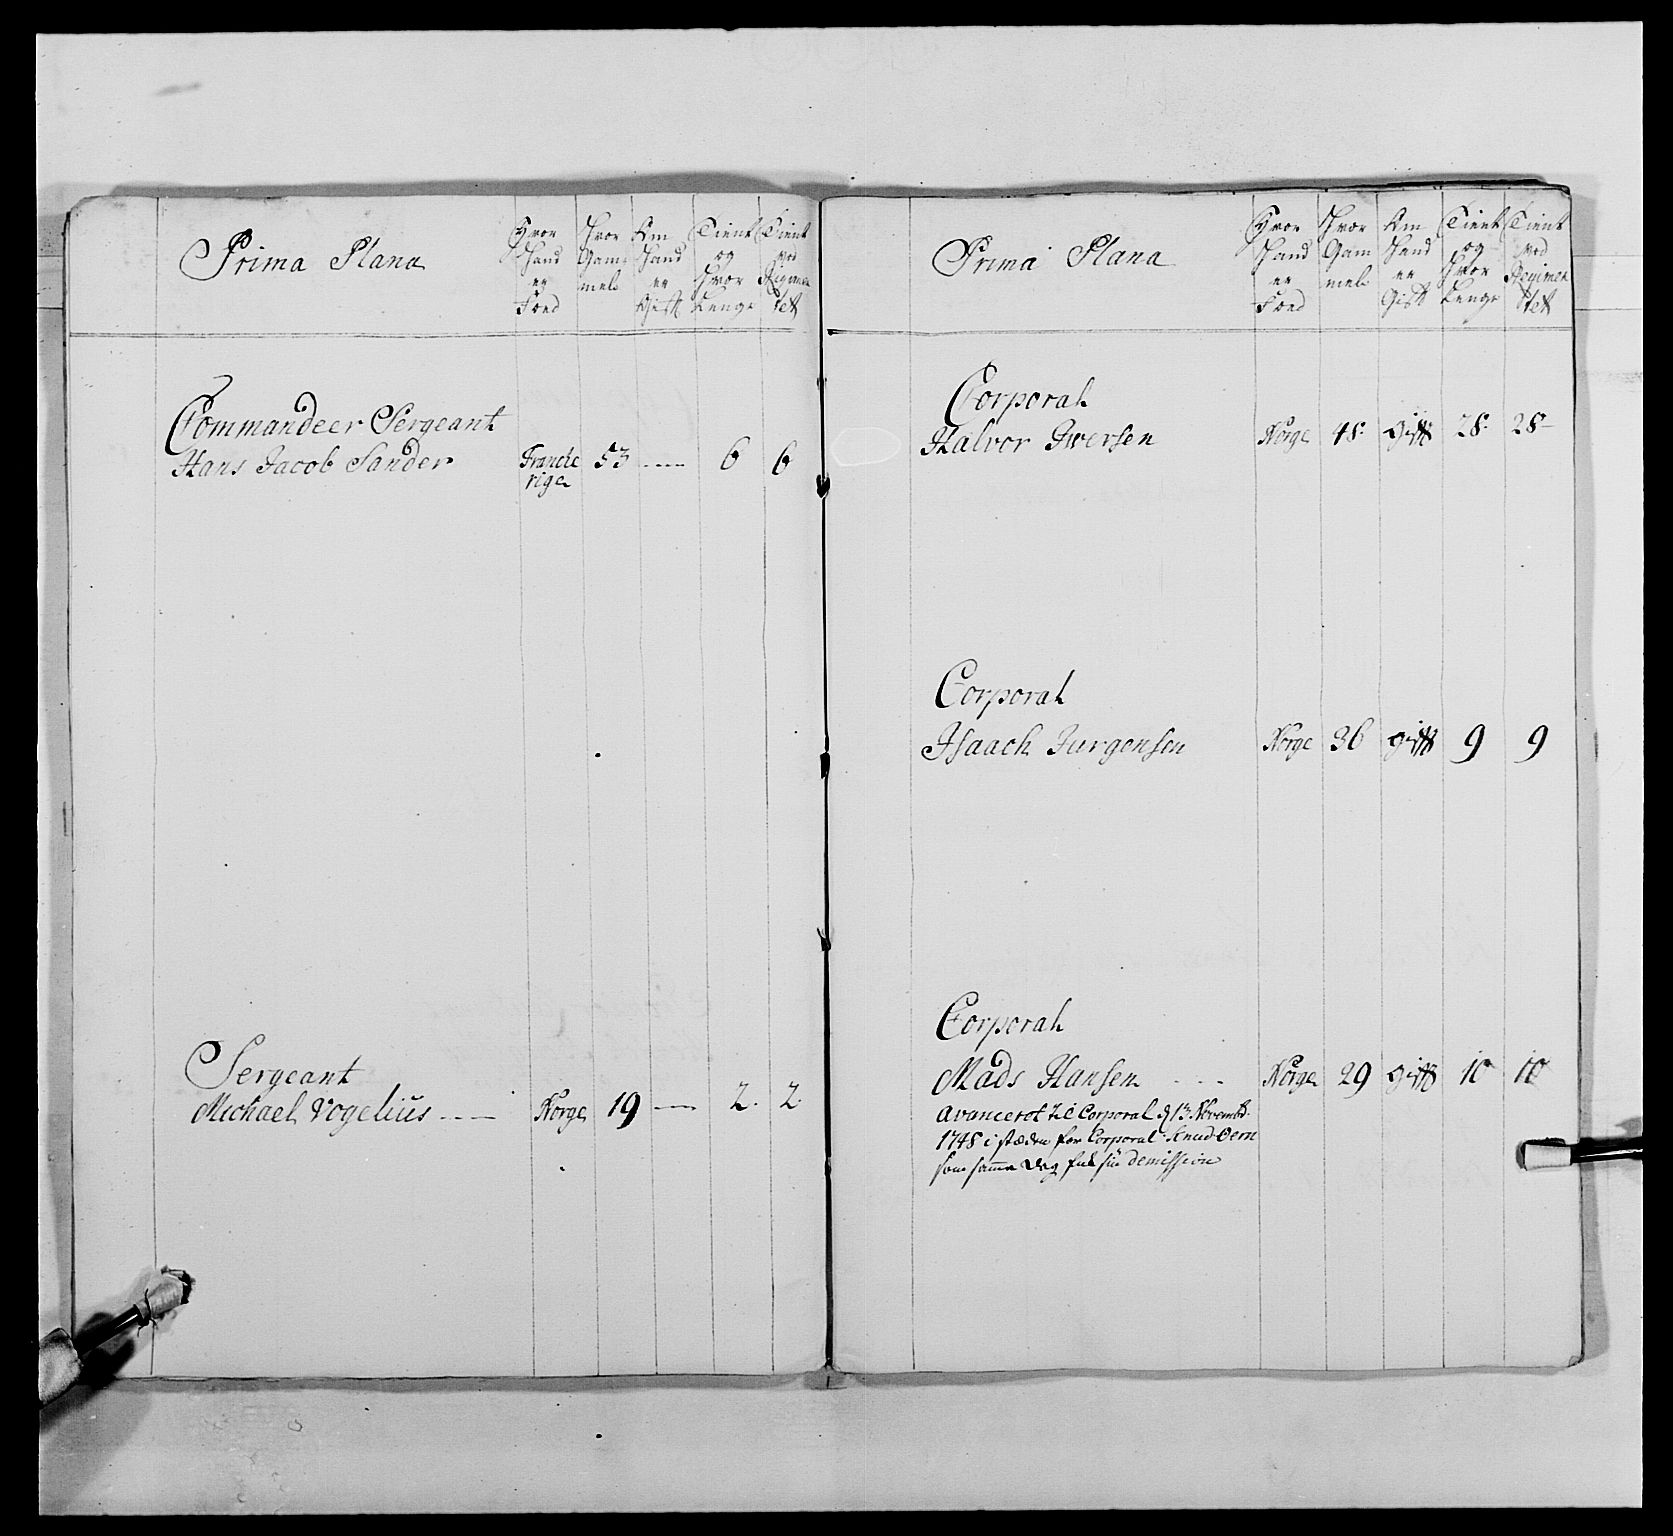 Prima Plana
Hvor
Hand
er
Foed
Hvor
Gam
mel
Om
Hand
er
Gift
Tient
og
Hvor
Lenge
Tient
ved
Regimen
tet
Commandeer Sergeant
Hans Jacob Sander Francke 53 ---- 6 6
rige
Sergeant
Michael Vogelius ---- Norge 19 --- 2. 2.
Prima Plana
Hvor
Hand
er
Foed
Hvor
Gam
mel
Om
Hand
er
Gift
Tient
og
Hvor
Lenge
Tient
ved
Regimen
tet
Corporal
Halvor Iwersen Norge 48. Gift 28. 28-
Corporal
Isaach Jurgensen Norge 36 Gift 9 9
Corporal
Mads Hansen - - - Norge 29 Gift 10 10
Avanceret til Corporal d 13 Novembr.
1748 i stæden for Corporal Knud Oern
som samme Dag fik sin Demission